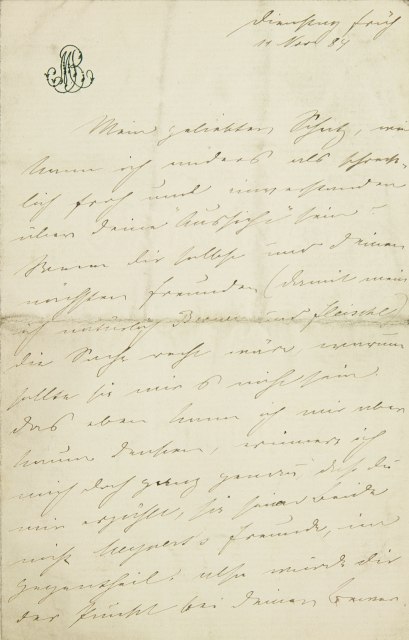 Dienstag früh
11 Nov. 84
MB
Mein geliebter Schatz, wie
kann ich anders als schreck-
lich froh und einverstanden
über deine "Aussicht" sein?
Wenn dir selbst und deinen
nächsten Freunden (damit mein
ich natürlich Breuer und Fleischl)
die Sache recht wäre, warum
sollte sie mir's nicht sein
das eben kann ich mir aber
kaum denken, erinnere ich
mich doch ganz genau daß du
mir erzählt, sie seien beide
nicht Meynert's Freunde, im
Gegentheil. also würde dir
der Punkt bei deinen